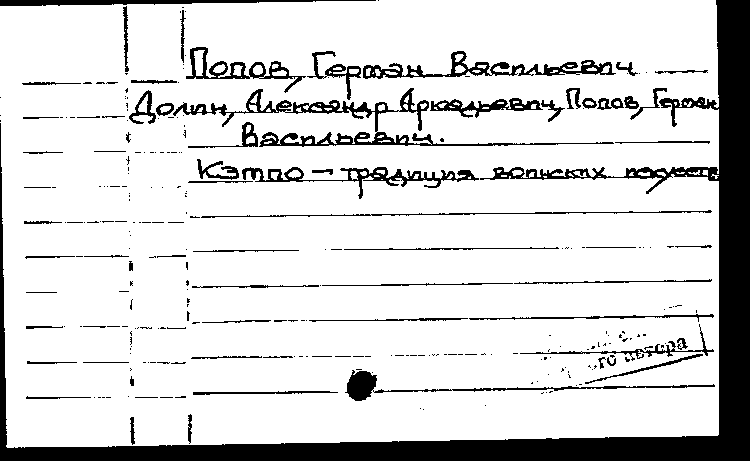 Попов, Герман Васильевич
Долин, Александр Аркадьевич, Попов, Герман
Васильевич.
Кэмпо — традиция воинских искусств
автора